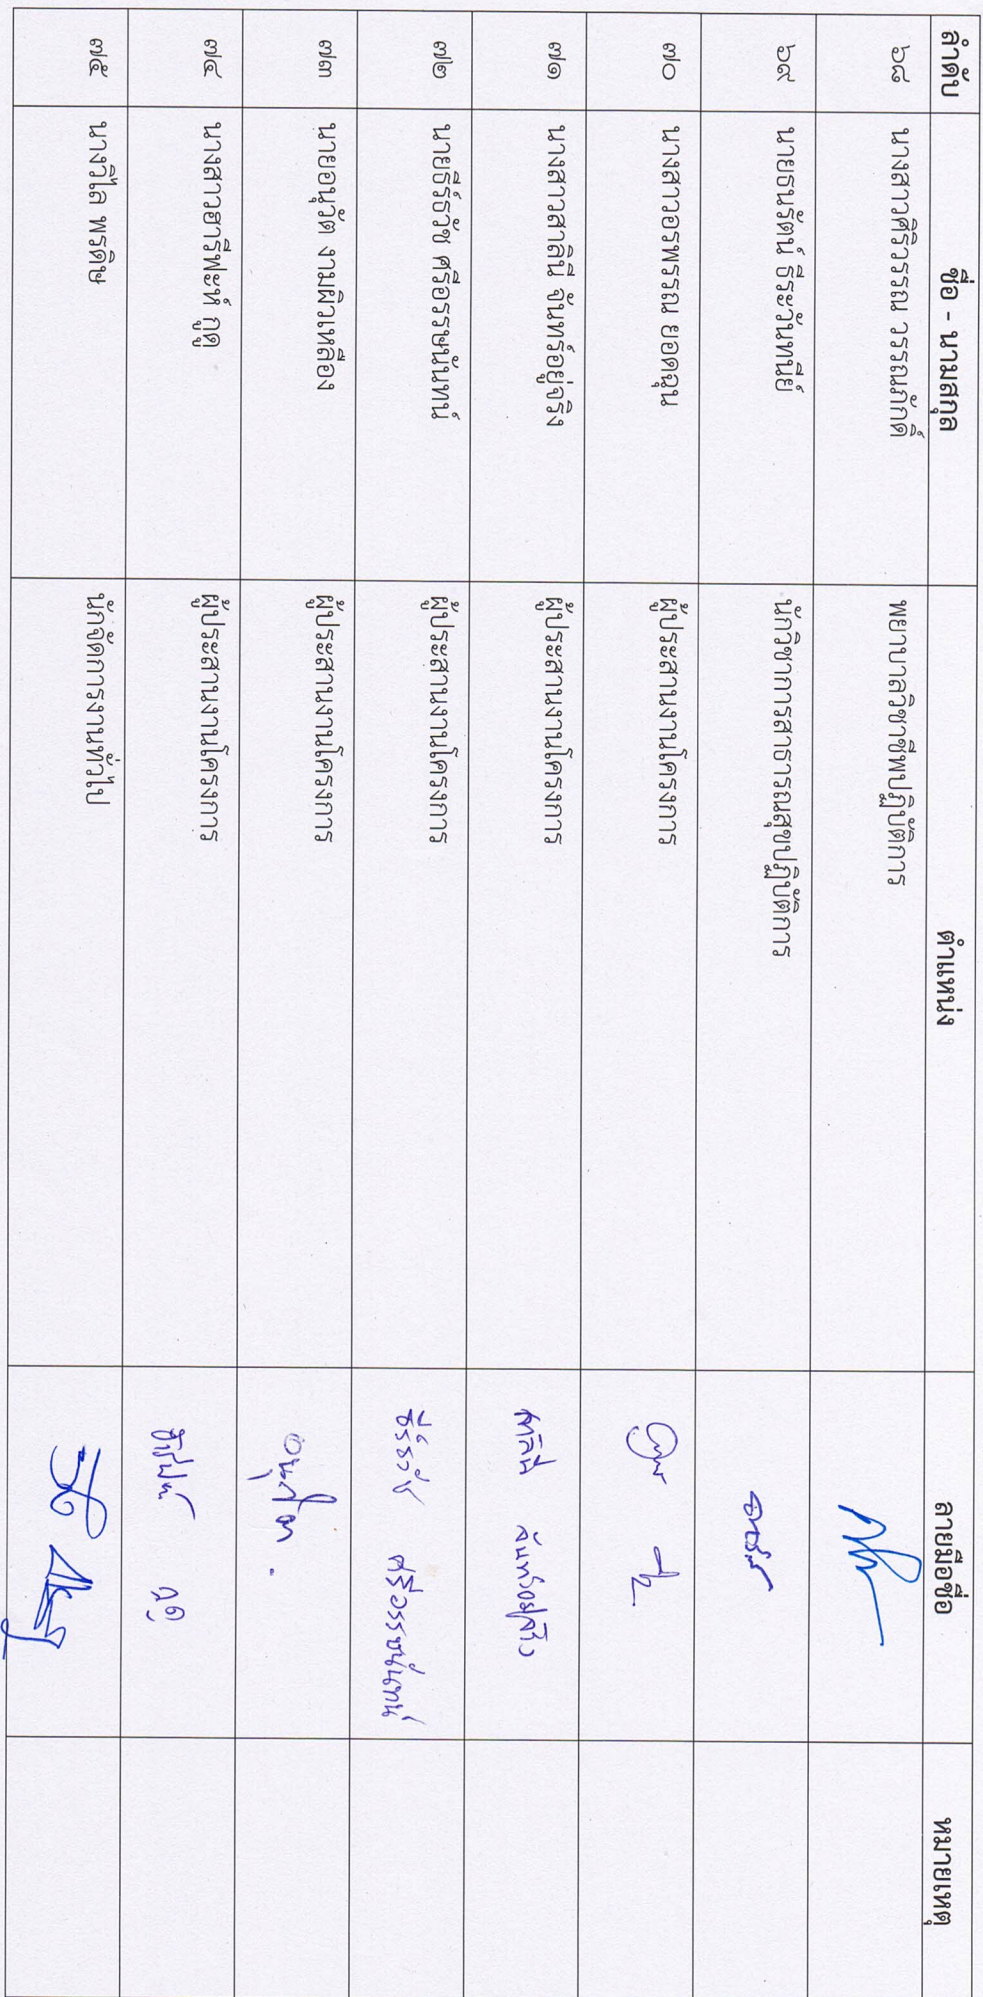 ลำดับ ชื่อ - นามสกุล ตำแหน่ง ลายมือชื่อ หมายเหตุ
๖๘ นางสาวศิริวรรณ วรรณภักดิ์ พยาบาลวิชาชีพปฏิบัติการ
๖๙ นายธนรัตน์ ธีระวันทนีย์ นักวิชาการสาธารณสุขปฏิบัติการ
๗๐ นางสาวอรพรรณ ยอดฉุน ผู้ประสานงานโครงการ
๗๑ นางสาวสาลินี จันทร์อยู่จริง ผู้ประสานงานโครงการ สาลินี จันทร์อยู่จริง
๗๒ นายธีร์ธวัช ศรีอรรษนันทน์ ผู้ประสานงานโครงการ ธีร์ธวัช ศรีอรรษนันทน์
๗๓ นายอนุวัต งามผิวเหลือง ผู้ประสานงานโครงการ อนุวัต
๗๔ นางสาวฮารีฟะห์ กูดู ผู้ประสานงานโครงการ ฮารีฟะห์ กูดู
๗๕ นางวิไล พรดิษ นักจัดการงานทั่วไป